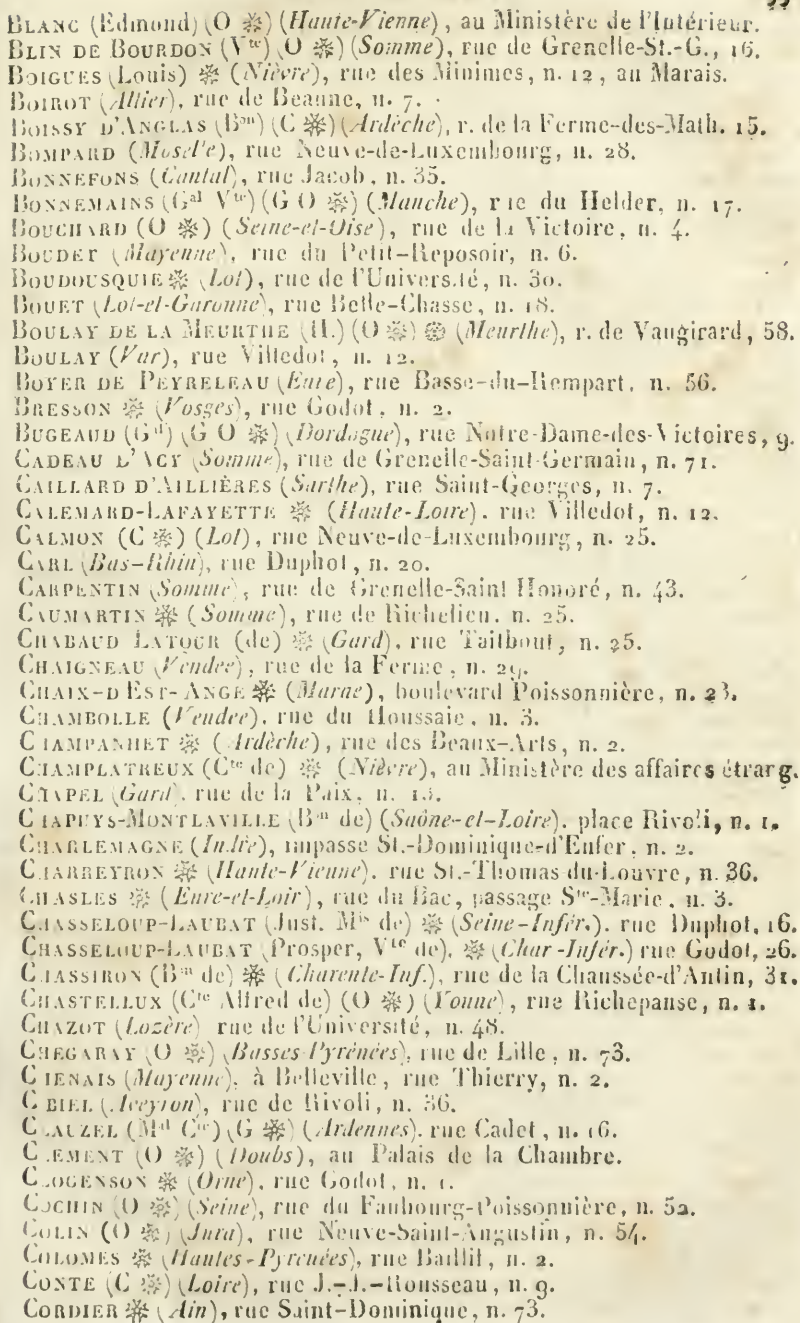 BLANC (Edmond) (O ❋) (Haute-Vienne), au Ministère de l'Intérieur.
BLIN DE BOURDON (Vte) (O ❋) (Somme), rue de Grenelle-St.-G., 16.
BOIGUES (Louis) ❋ (Nièvre), rue des Minimes, n. 12, au Marais.
BOIROT (Allier), rue de Beaune, n. 7.
BOISSY D'ANGLAS (Bon) (C ❋) (Ardèche), r. de la Ferme-des-Math. 15.
BOMPARD (Moselle), rue Neuve-de-Luxembourg, n. 28.
BONNEFONS (Cantal), rue Jacob, n. 35.
BONNEMAINS (Gal Vte) (G O ❋) (Manche), rue du Helder, n. 17.
BOUCHARD (O ❋) (Seine-et-Oise), rue de la Victoire, n. 4.
BOUDET (Mayenne), rue du Petit-Reposoir, n. 6.
BOUDOUSQUIE ❋ (Lot), rue de l'Université, n. 30.
BOUET (Lot-et-Garonne), rue Belle-Chasse, n. 18.
BOULAY DE LA MEURTHE (H.) (O ❋) ❋ (Meurthe), r. de Vaugirard, 58.
BOULAY (Var), rue Villedot, n. 12.
BOYER DE PEYRELEAU (Eure), rue Basse-du-Rempart, n. 56.
BRESSON ❋ (Vosges), rue Godot, n. 2.
BUGEAUD (Gal) (G O ❋) (Dordogne), rue Notre-Dame-des-Victoires, 9.
CADEAU D'ACY (Somme), rue de Grenelle-Saint-Germain, n. 71.
CAILLARD D'AILLIÈRES (Sarthe), rue Saint-Georges, n. 7.
CALEMARD-LAFAYETTE ❋ (Haute-Loire), rue Villedot, n. 12.
CALMON (C ❋) (Lot), rue Neuve-de-Luxembourg, n. 25.
CARL (Bas-Rhin), rue Duphot, n. 20.
CARPENTIN (Somme), rue de Grenelle-Saint Honoré, n. 43.
CAUMARTIN ❋ (Somme), rue de Richelieu, n. 25.
CHABAUD LATOUR (de) ❋ (Gard), rue Taitbout, n. 25.
CHAIGNEAU (Vendee), rue de la Ferme, n. 29.
CHAIX-D'EST-ANGE ❋ (Marne), boulevard Poissonnière, n. 23.
CHAMBOLLE (Vendee), rue du Houssaie, n. 3.
CHAMPANHET ❋ (Ardèche), rue des Beaux-Arts, n. 2.
CHAMPLATREUX (Cte de) ❋ (Nièvre), au Ministère des affaires étrang.
CHAPEL (Gard), rue de la Paix, n.
CHAPUYS-MONTLAVILLE (Bon de) (Saône-et-Loire), place Rivoli, n. 1.
CHARLEMAGNE (Indre), impasse St.-Dominique-d'Enfer, n. 2.
CHARREYRON ❋ (Haute-Vienne), rue St.-Thomas du-Louvre, n. 36.
CHASLES ❋ (Eure-et-Loir), rue du Bac, passage Ste-Marie, n. 3.
CHASSELOUP-LAUBAT (Just. Mis de) ❋ (Seine-Infér.), rue Duphot, 16.
CHASSELOUP-LAUBAT (Prosper, Vte de), ❋ (Char-Infér.) rue Godot, 26.
CHASSIRON (Bon de) ❋ (Charente-Inf.), rue de la Chaussée-d'Antin, 31.
CHASTELLUX (Cte Alfred de) (O ❋) (Yonne), rue Richepanse, n. 1.
CHAZOT (Lozère) rue de l'Université, n. 48.
CHEGARAY (O ❋) (Basses Pyrénées), rue de Lille, n. 73.
CHENAIS (Mayenne), à Belleville, rue Thierry, n. 2.
CIBIEL (Aveyron), rue de Rivoli, n. 36.
CLAUZEL (Mal Cte) (G ❋) (Ardennes), rue Cadet, n. 16.
CLEMENT (O ❋) (Doubs), au Palais de la Chambre.
CLOGENSON ❋ (Orne), rue Godot, n. 1.
COCHIN (O ❋) (Seine), rue du Faubourg-Poissonnière, n. 52.
COLIN (O ❋) (Jura), rue Neuve-Saint-Augustin, n. 54.
COLOMES ❋ (Hautes-Pyrenées), rue Baillif, n. 2.
CONTE (C ❋) (Loire), rue J.-J.-Rousseau, n. 9.
CORDIER ❋ (Ain), rue Saint-Dominique, n. 73.